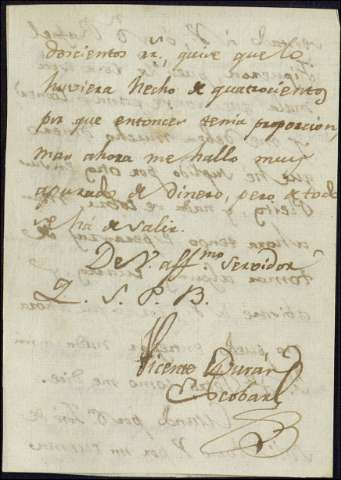 doscientos rs, quise que lo
huviera hecho de quatrocientos
por que entonces tenia proporcion,
mas ahora me hallo muy
apurado de dinero, pero de todo
se há de salir.
De V. aff.mo servidor
Q. S. P. B.
Vicente Durán
Escobar